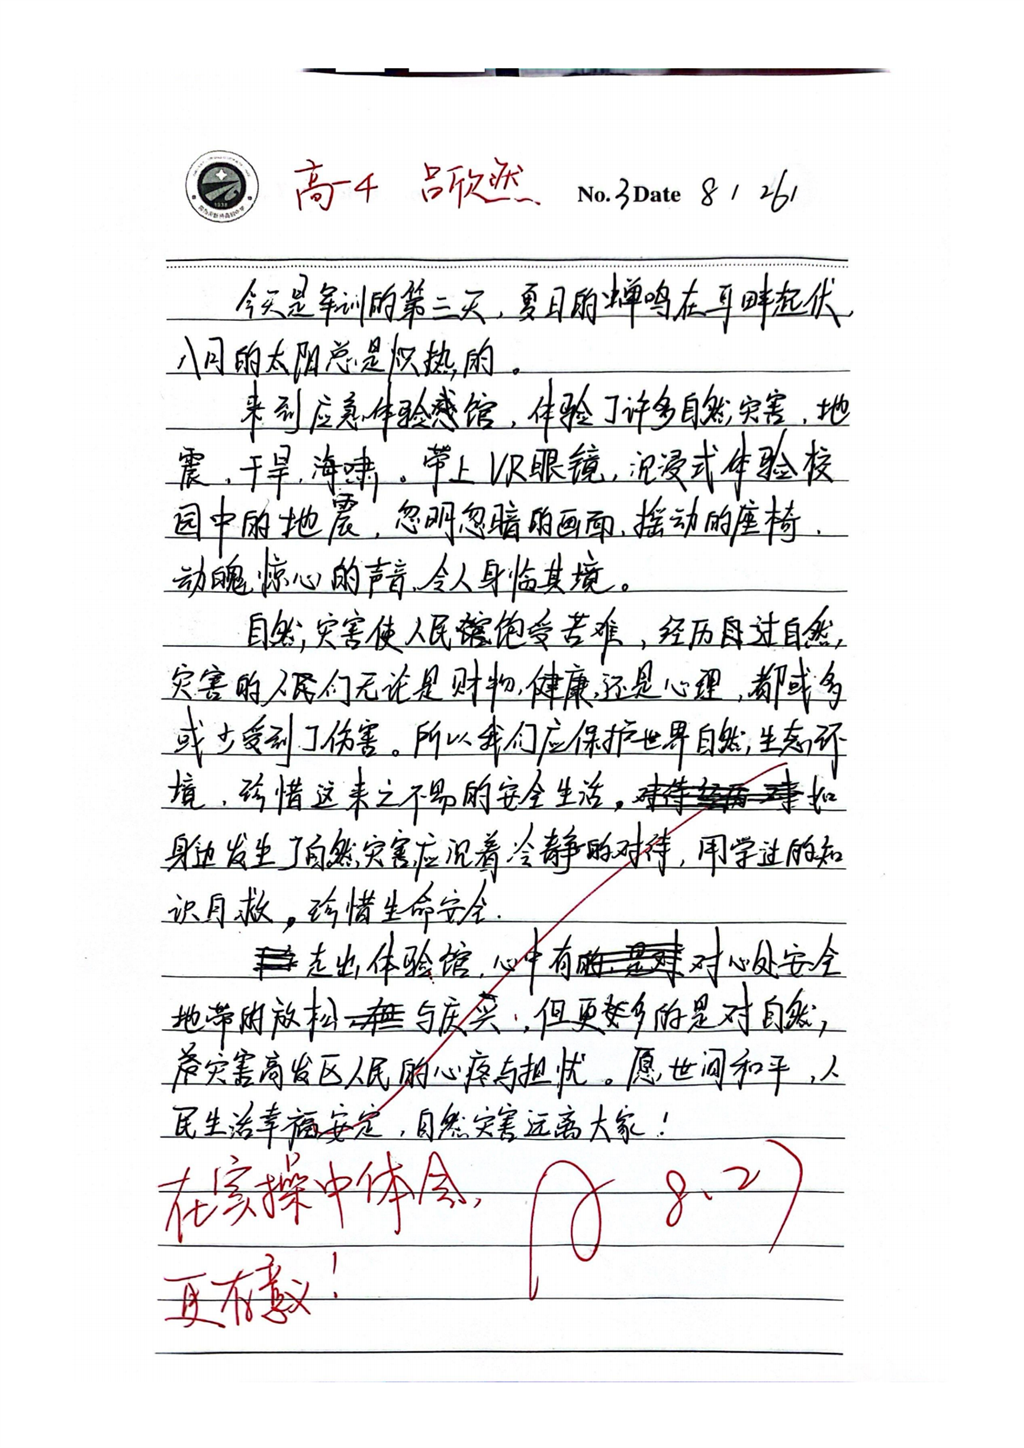 高一4 吕欣然 No. 3 Date 8 / 26 /
今天是军训的第三天，夏日的蝉鸣在耳畔起伏，
八月的太阳总是炽热的。
来到应急体验馆，体验了许多自然灾害，地
震，干旱，海啸。带上VR眼镜，沉浸式体验校
园中的地震，忽明忽暗的画面，摇动的座椅，
动魄惊心的声音，令人身临其境。
自然灾害使人民饱受苦难，经历过自然
灾害的人民们无论是财物，健康，还是心理，都或多
或少受到了伤害。所以我们应保护世界自然生态环
境，珍惜这来之不易的安全生活。如
身边发生了自然灾害应沉着冷静的对待，用学过的知
识自救。珍惜生命安全.
走出体验馆，心中有对心处安全
地带的放松与庆幸，但更多的是对自然
灾害高发区人民的心疼与担忧。愿世间和平，人
民生活幸福安定，自然灾害远离大家！
在实操中体会，
更有意义！
8.27